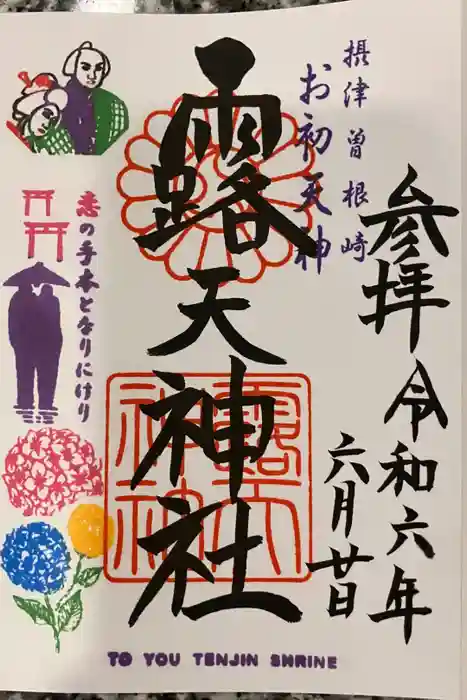 摂津 曽根崎
お初天神
参拝
令和六年
六月廿日
露天神社
恋の手本となりにけり
TO YOU TENJIN SHRINE